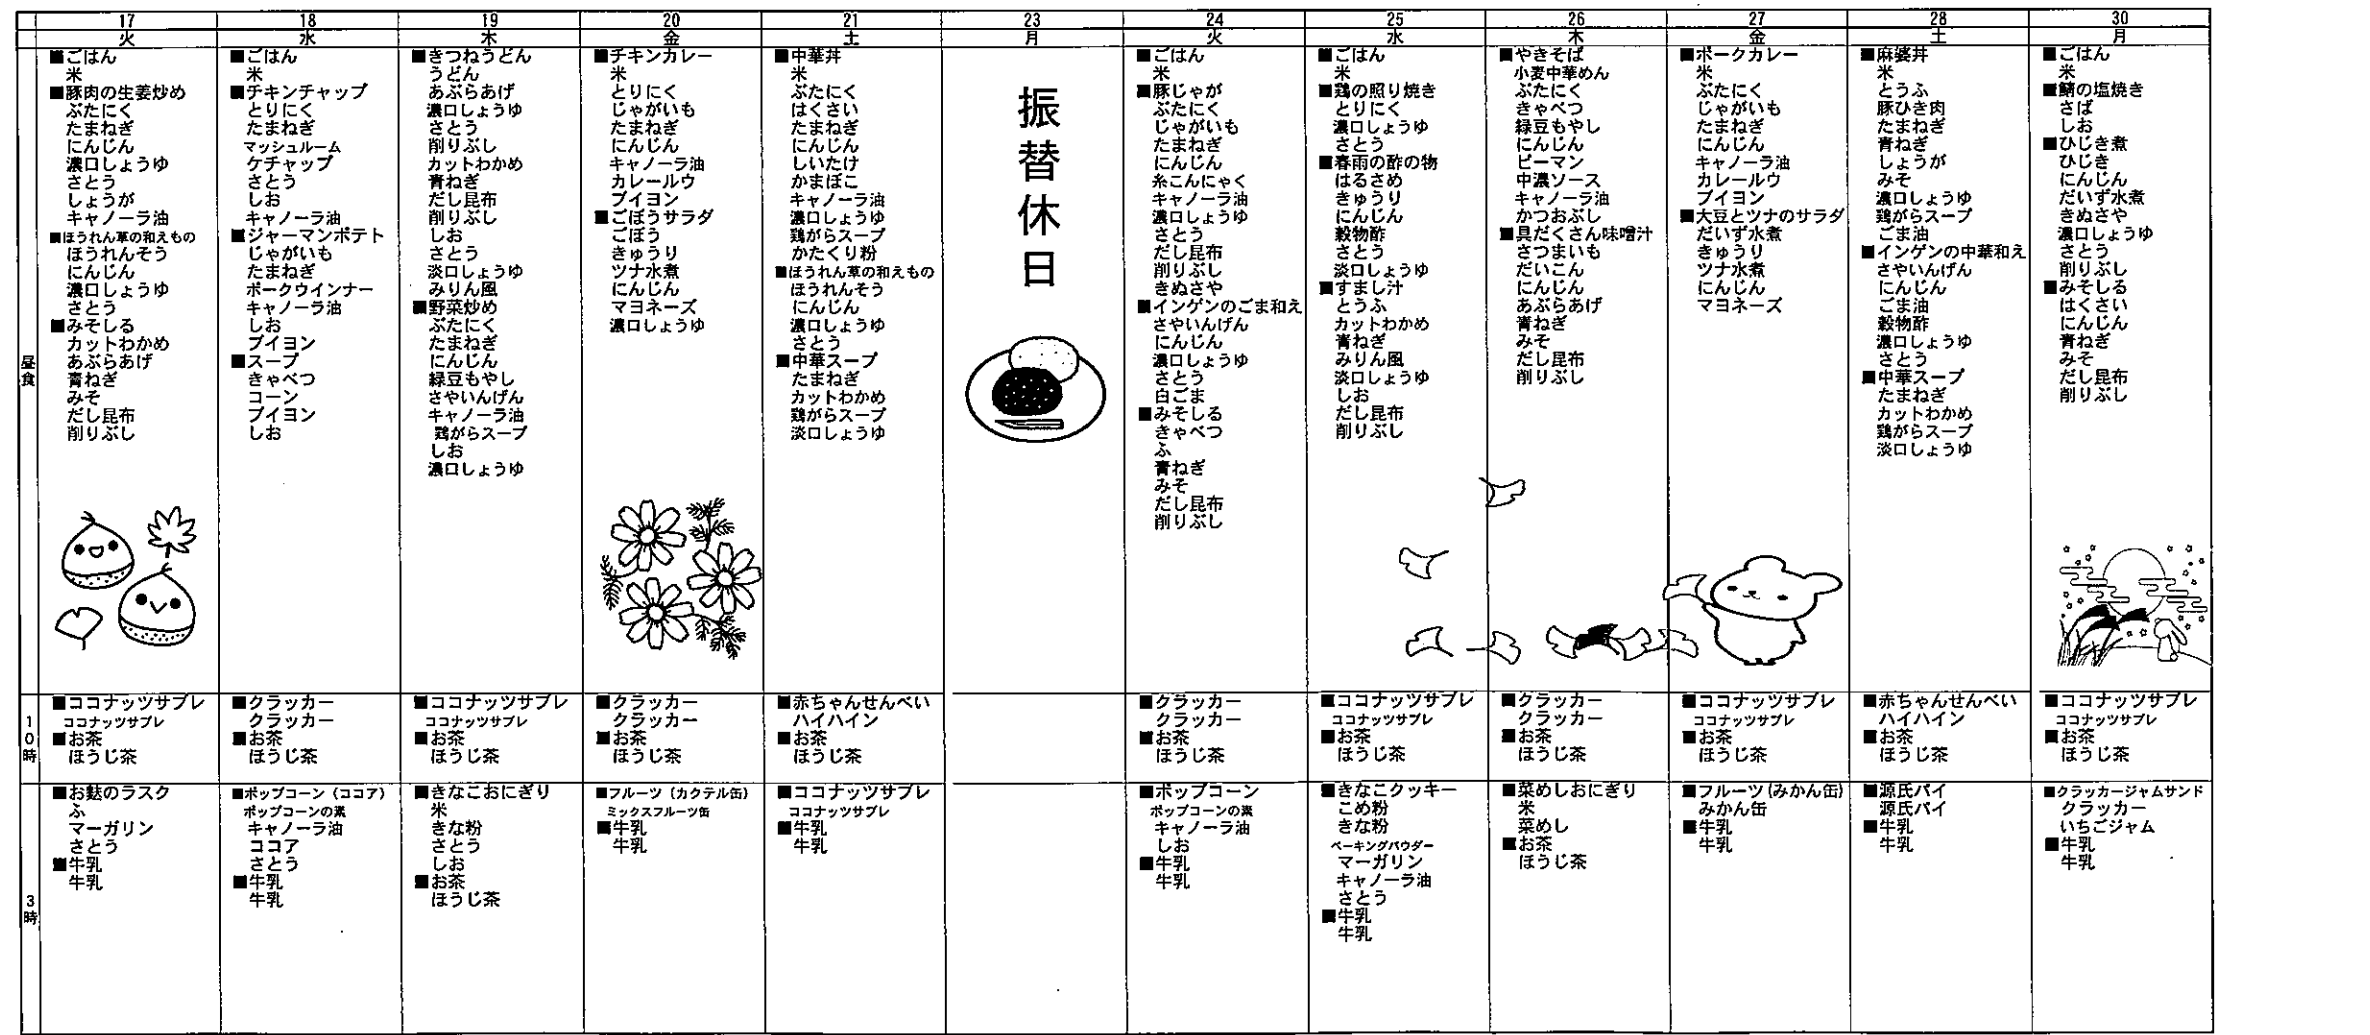 17
火
■ごはん
米
■豚肉の生姜炒め
ぶたにく
たまねぎ
にんじん
濃口しょうゆ
さとう
しょうが
キャノーラ油
■ほうれん草の和えもの
ほうれんそう
にんじん
濃口しょうゆ
さとう
■みそしる
カットわかめ
あぶらあげ
青ねぎ
みそ
だし昆布
削りぶし
18
水
■ごはん
米
■チキンチャップ
とりにく
たまねぎ
マッシュルーム
ケチャップ
さとう
しお
キャノーラ油
■ジャーマンポテト
じゃがいも
たまねぎ
ポークウインナー
キャノーラ油
しお
ブイヨン
■スープ
きゃべつ
コーン
ブイヨン
しお
19
木
■きつねうどん
うどん
あぶらあげ
濃口しょうゆ
さとう
削りぶし
カットわかめ
青ねぎ
だし昆布
削りぶし
しお
さとう
淡口しょうゆ
みりん風
■野菜炒め
ぶたにく
たまねぎ
にんじん
緑豆もやし
さやいんげん
キャノーラ油
鶏がらスープ
しお
濃口しょうゆ
20
金
■チキンカレー
米
とりにく
じゃがいも
たまねぎ
にんじん
キャノーラ油
カレールウ
ブイヨン
■ごぼうサラダ
ごぼう
きゅうり
ツナ水煮
にんじん
マヨネーズ
濃口しょうゆ
21
土
■中華丼
米
ぶたにく
はくさい
たまねぎ
にんじん
しいたけ
かまぼこ
キャノーラ油
濃口しょうゆ
鶏がらスープ
かたくり粉
■ほうれん草の和えもの
ほうれんそう
にんじん
濃口しょうゆ
さとう
■中華スープ
たまねぎ
カットわかめ
鶏がらスープ
淡口しょうゆ
23
月
振替休日
24
火
■ごはん
米
■豚じゃが
ぶたにく
じゃがいも
たまねぎ
にんじん
糸こんにゃく
キャノーラ油
濃口しょうゆ
さとう
だし昆布
削りぶし
きぬさや
■インゲンのごま和え
さやいんげん
にんじん
濃口しょうゆ
さとう
白ごま
■みそしる
きゃべつ
ふ
青ねぎ
みそ
だし昆布
削りぶし
25
水
■ごはん
米
■鶏の照り焼き
とりにく
濃口しょうゆ
さとう
■春雨の酢の物
はるさめ
きゅうり
にんじん
穀物酢
さとう
淡口しょうゆ
■すまし汁
とうふ
カットわかめ
青ねぎ
みりん風
淡口しょうゆ
しお
だし昆布
削りぶし
26
木
■やきそば
小麦中華めん
ぶたにく
きゃべつ
緑豆もやし
にんじん
ピーマン
中濃ソース
キャノーラ油
かつおぶし
■具だくさん味噌汁
さつまいも
だいこん
にんじん
あぶらあげ
青ねぎ
みそ
だし昆布
削りぶし
27
金
■ポークカレー
米
ぶたにく
じゃがいも
たまねぎ
にんじん
キャノーラ油
カレールウ
ブイヨン
■大豆とツナのサラダ
だいず水煮
きゅうり
ツナ水煮
にんじん
マヨネーズ
28
土
■麻婆丼
米
とうふ
豚ひき肉
たまねぎ
青ねぎ
しょうが
みそ
濃口しょうゆ
鶏がらスープ
ごま油
■インゲンの中華和え
さやいんげん
にんじん
ごま油
穀物酢
濃口しょうゆ
さとう
■中華スープ
たまねぎ
カットわかめ
鶏がらスープ
淡口しょうゆ
30
月
■ごはん
米
■鯖の塩焼き
さば
しお
■ひじき煮
ひじき
にんじん
だいず水煮
きぬさや
濃口しょうゆ
さとう
削りぶし
■みそしる
はくさい
にんじん
青ねぎ
みそ
だし昆布
削りぶし
昼食
10時
■ココナッツサブレ
ココナッツサブレ
■お茶
ほうじ茶
■クラッカー
クラッカー
■お茶
ほうじ茶
■ココナッツサブレ
ココナッツサブレ
■お茶
ほうじ茶
■クラッカー
クラッカー
■お茶
ほうじ茶
■赤ちゃんせんべい
ハイハイン
■お茶
ほうじ茶
■クラッカー
クラッカー
■お茶
ほうじ茶
■ココナッツサブレ
ココナッツサブレ
■お茶
ほうじ茶
■クラッカー
クラッカー
■お茶
ほうじ茶
■ココナッツサブレ
ココナッツサブレ
■お茶
ほうじ茶
■赤ちゃんせんべい
ハイハイン
■お茶
ほうじ茶
■ココナッツサブレ
ココナッツサブレ
■お茶
ほうじ茶
3時
■お麩のラスク
ふ
マーガリン
さとう
■牛乳
牛乳
■ポップコーン（ココア）
ポップコーンの素
キャノーラ油
ココア
さとう
■牛乳
牛乳
■きなこおにぎり
米
きな粉
さとう
しお
■お茶
ほうじ茶
■フルーツ（カクテル缶）
ミックスフルーツ缶
■牛乳
牛乳
■ココナッツサブレ
ココナッツサブレ
■牛乳
牛乳
■ポップコーン
ポップコーンの素
キャノーラ油
しお
■牛乳
牛乳
■きなこクッキー
こめ粉
きな粉
ベーキングパウダー
マーガリン
キャノーラ油
さとう
■牛乳
牛乳
■菜めしおにぎり
米
菜めし
■お茶
ほうじ茶
■フルーツ(みかん缶)
みかん缶
■牛乳
牛乳
■源氏パイ
源氏パイ
■牛乳
牛乳
■クラッカージャムサンド
クラッカー
いちごジャム
■牛乳
牛乳